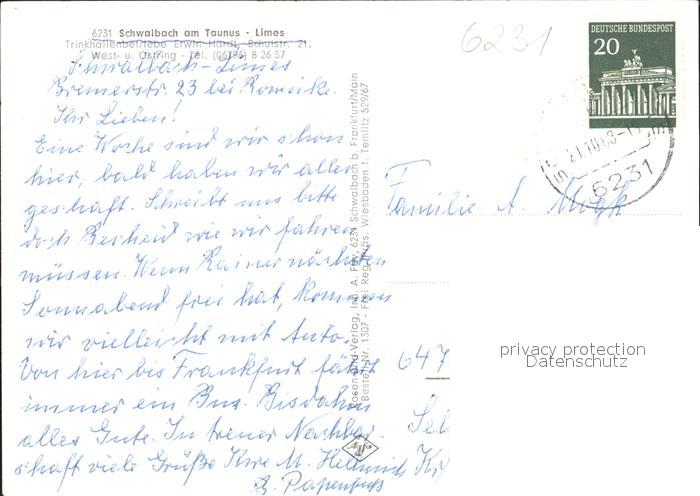 6231 Schwalbach am Taunus - Limes
Trinkhallenbetriebe Erwin Hardt, Schulstr. 21,
West- u. Ostring - Tel. (06196) 8 26 57
Schwalbach-Limes
Bremerstr. 23 bei Romeike.
Ihr Lieben!
Eine Woche sind wir schon
hier, bald haben wir alles
geschaft. Schreibt uns bitte
doch Bescheid wie wir fahren
müssen. Wenn Rainer nächsten
Sonnabend frei hat, kommen
wir vielleicht mit Auto.
Von hier bis Frankfurt fährt
immer ein Bus. Bis dahin
alles Gute. In treuer Nachbar
schaft viele Grüße Ihre M. Hellmich
Papenfuß
6231
DEUTSCHE BUNDESPOST
20
21.10.68
6231
Familie A. Mogk
647
Sel
privacy protection
Datenschutz
Verlag, Inh. A. Fay, 6231 Schwalbach b. Frankfurt/Main
Bestell-Nr. 1307 - Frei Reg. Präs. Wiesbaden f. Temlitz 529/67
Agfa